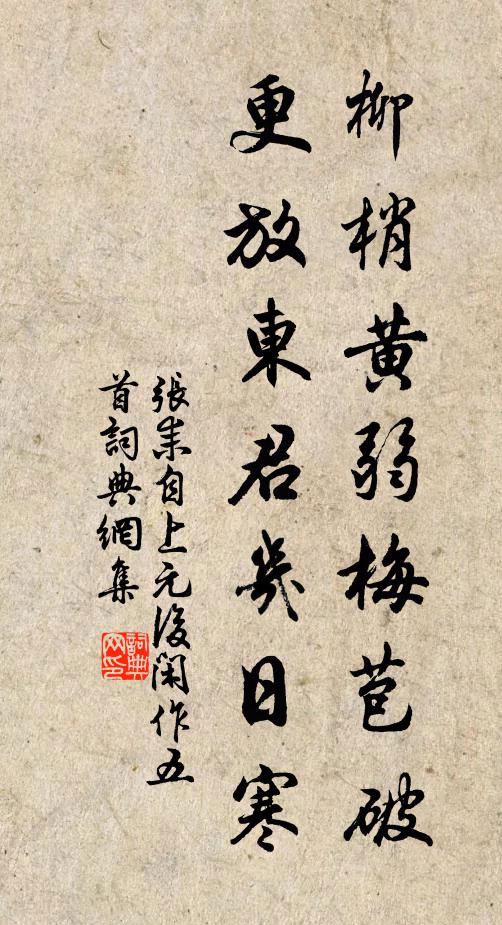 柳梢黄弱梅苞破
更放東君幾日寒
張耒自上元後閑作五
首詞典網集
詞典网印